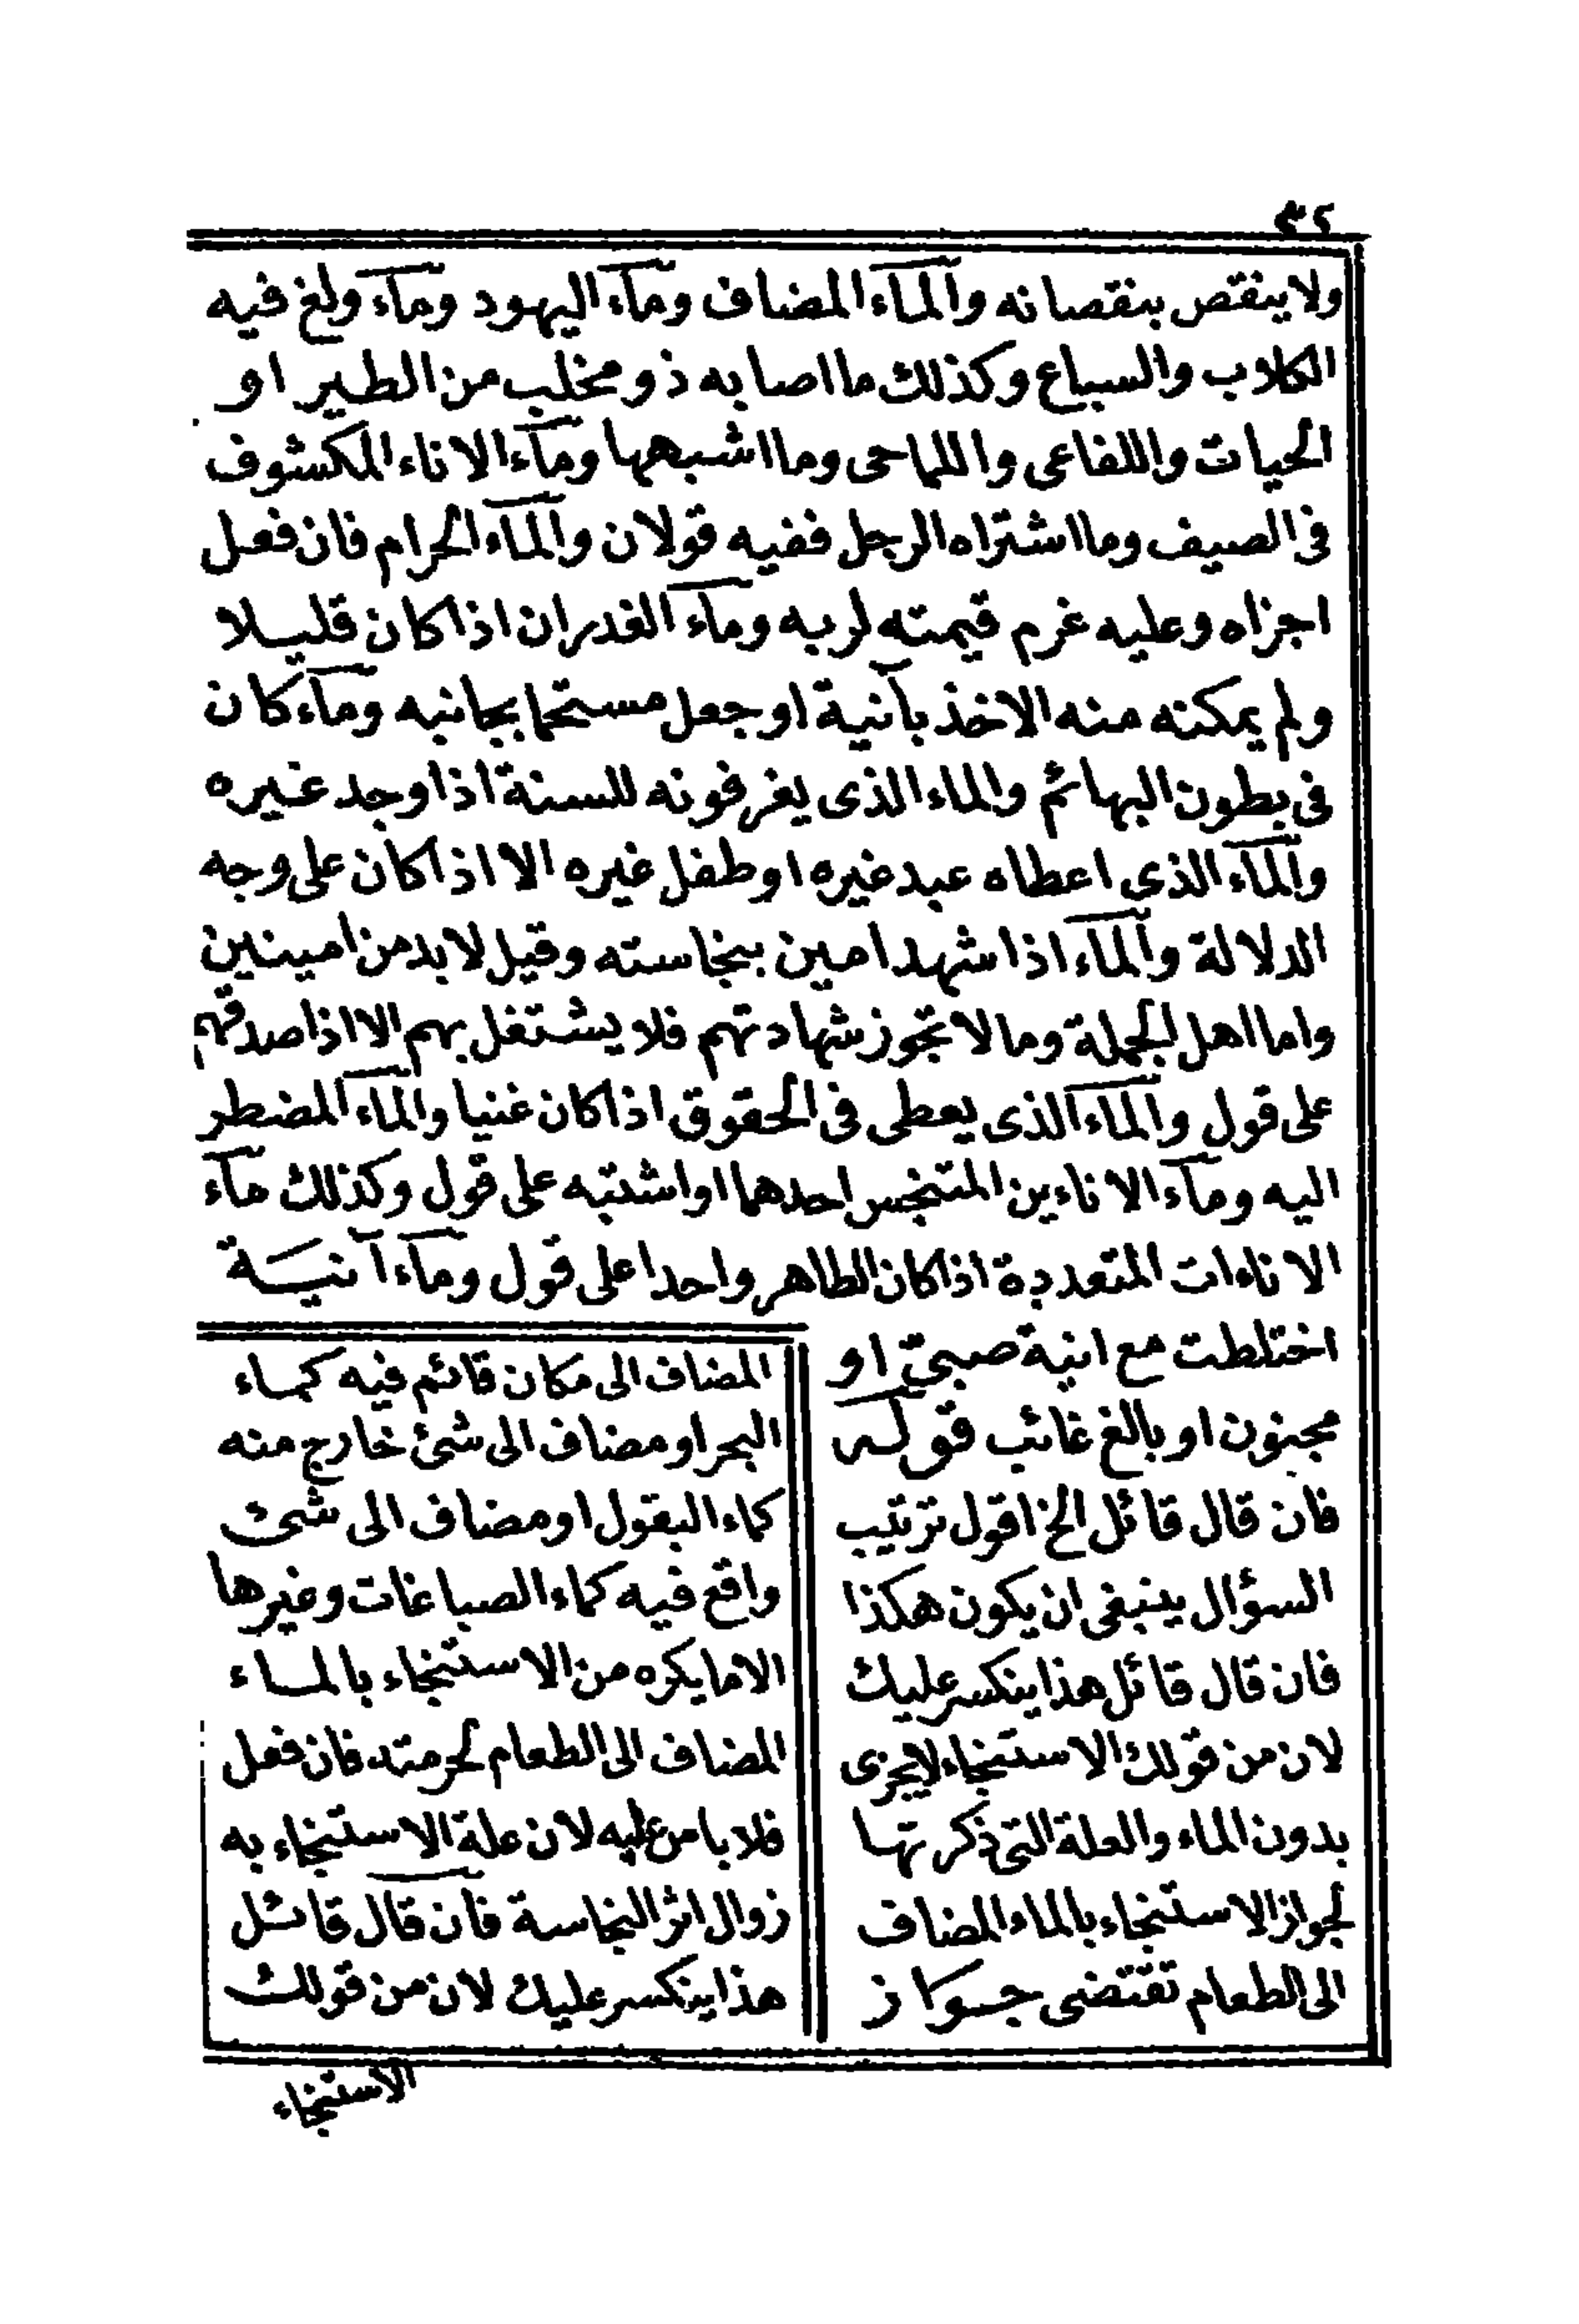 ٤٢
ولا ينقص بنقصانه والمآء المضاف ومآء اليهود ومآء ولغ فيه
الكلاب والسباع وكذلك ما اصابه ذو مخلب من الطير او
الحيات واللفاعى واللماحى وما اشبهها ومآء الاناء المكشوف
فى الصيف وما اشتراه الرجل ففيه قولان والمآء الحرام فان فعل
اجزاه وعليه غرم قيمته لربه ومآء الغدران اذا كان قليلا
ولم يمكنه منه الاخذ بآنية او جعل مستحما بجانبه ومآء كان
فى بطون البهائم والماء الذى يغرفونه للسنة اذا وجد غيره
والمآء الذى اعطاه عبد غيره او طفل غيره الا اذا كان على وجه
الدلالة والمآء اذا شهد امين بنجاسته وقيل لابد من امينين
واما اهل الجملة وما لا تجوز شهادتهم فلا يشتغل بهم الا اذا صدقهم
على قول والمآء الذى يعطى فى الحقوق اذا كان غنيا والمآء المضطر
اليه ومآء الاناءين المتنجس احدهما او اشتبه على قول وكذلك مآء
الاناءات المتعددة اذا كان الطاهر واحدا على قول ومآء آنية
اختلطت مع انية صبيّ او
مجنون او بالغ غائب قوله
فان قال قائل الخ اقول ترتيب
السؤال ينبغى ان يكون هكذا
فان قال قائل هذا ينكسر عليك
لان من قولك الاستنجاء لا يجزى
بدون الماء والعلة التى ذكرتها
لجواز الاستنجاء بالماء المضاف
الى الطعام تقتضى جواز
المضاف الى مكان قائم فيه كماء
البحر او مضاف الى شئ خارج منه
كماء البقول او مضاف الى شئ
واقع فيه كماء الصباغات وغيرها
الا ما يكره من الاستنجاء بالماء
المضاف الى الطعام لحرمته فان فعل
فلا باس عليه لان علة الاستنجاء به
زوال اثر النجاسة فان قال قائل
هذا ينكسر عليك لان من قولك
الاستنجاء